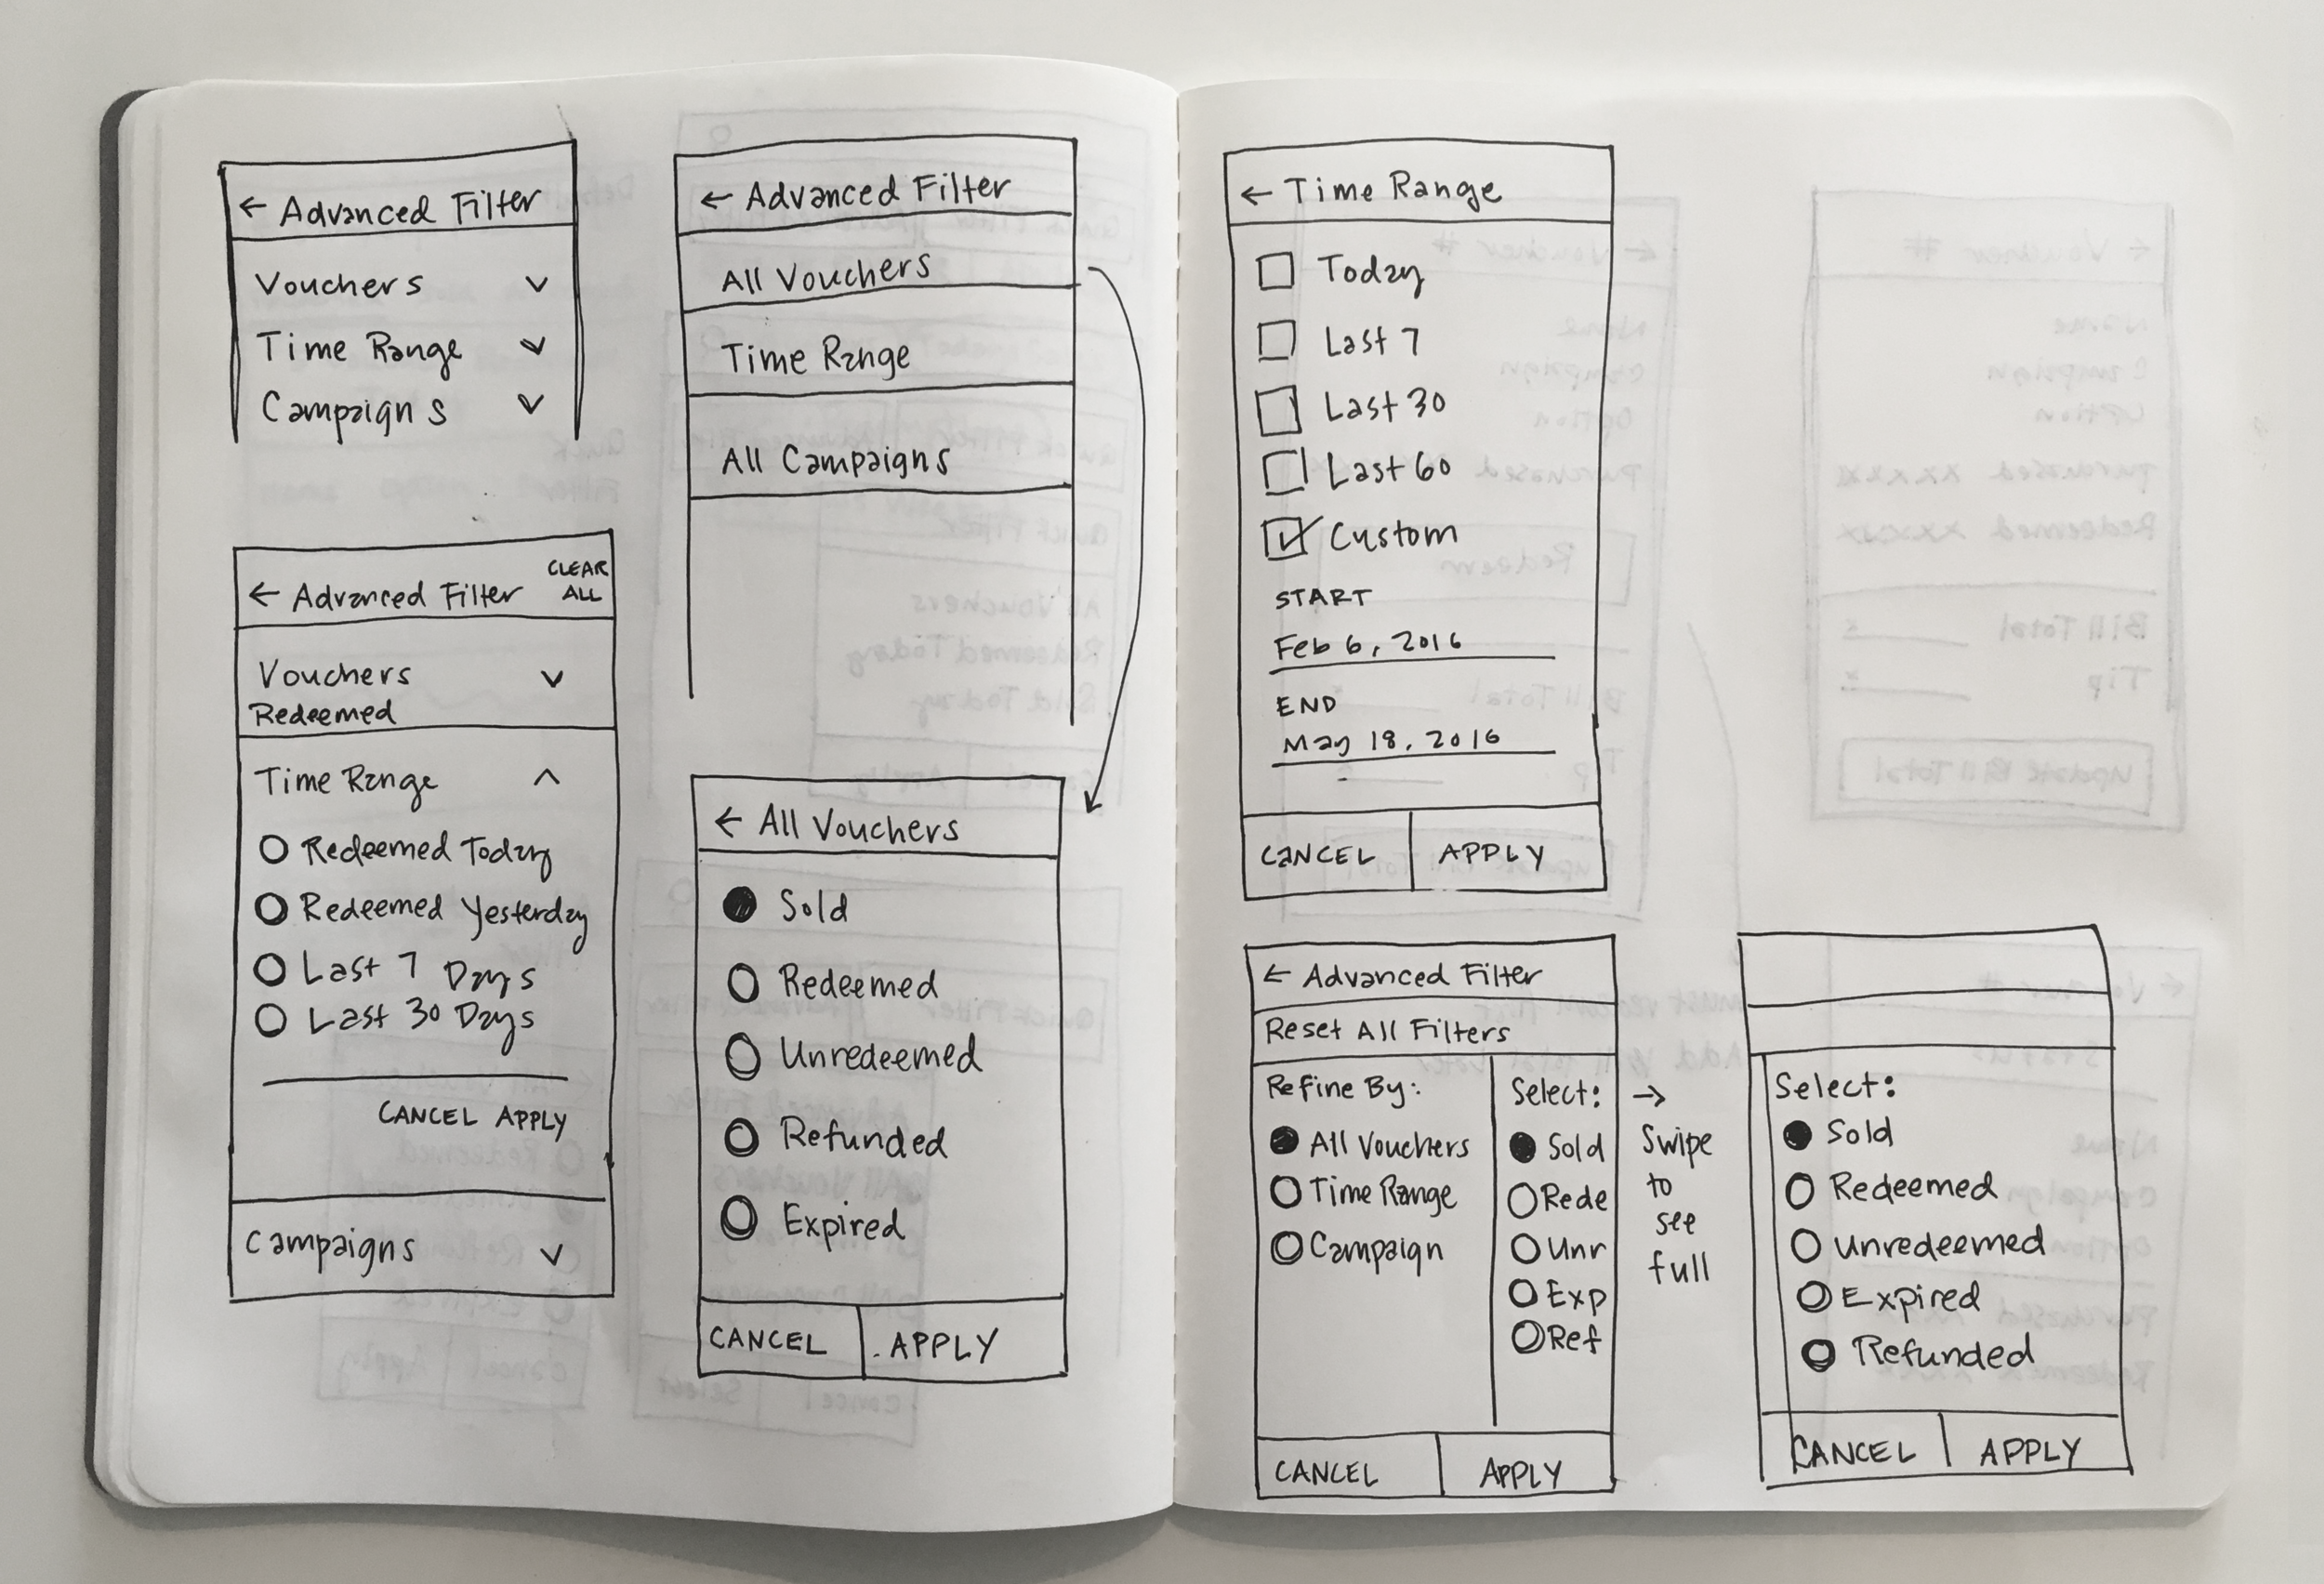 ← Advanced Filter
Vouchers
Time Range
Campaigns
← Advanced Filter
CLEAR
ALL
Vouchers
Redeemed
Time Range
Redeemed Today
Redeemed Yesterday
Last 7 Days
Last 30 Days
CANCEL APPLY
Campaigns
← Advanced Filter
All Vouchers
Time Range
All Campaigns
← All Vouchers
Sold
Redeemed
Unredeemed
Refunded
Expired
CANCEL APPLY
← Time Range
Today
Last 7
Last 30
Last 60
Custom
START
Feb 6, 2016
END
May 18, 2016
CANCEL APPLY
← Advanced Filter
Reset All Filters
Refine By:
All Vouchers
Time Range
Campaign
Select:
Sold
Rede
Unr
Exp
Ref
CANCEL APPLY
→
Swipe
to
see
full
Select:
Sold
Redeemed
Unredeemed
Expired
Refunded
CANCEL APPLY